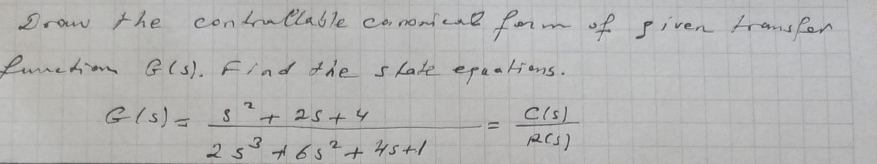 Draw the contrallable canonical form of given transfer
function G(s). Find the state equations.
G(s) = (s² + 2s + 4) / (2s³ + 6s² + 4s + 1) = C(s) / R(s)